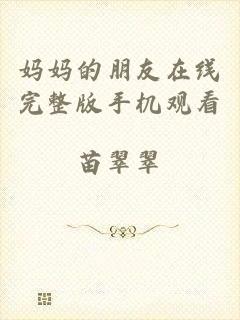 妈妈的朋友在线
完整版手机观看
苗翠翠